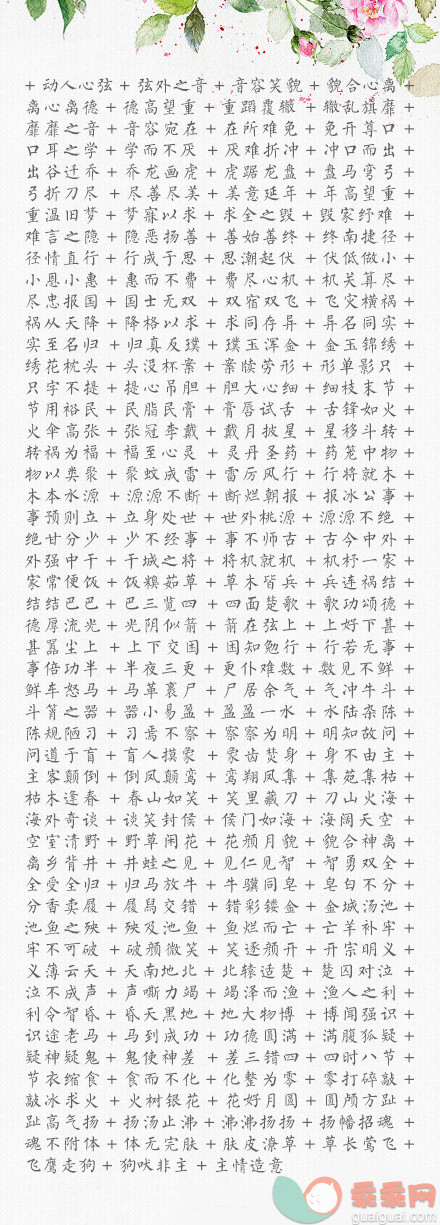 + 动人心弦 + 弦外之音 + 音容笑貌 + 貌合心离 +
离心离德 + 德高望重 + 重蹈覆辙 + 辙乱旗靡 +
靡靡之音 + 音容宛在 + 在所难免 + 免开尊口 +
口耳之学 + 学而不厌 + 厌难折冲 + 冲口而出 +
出谷迁乔 + 乔龙画虎 + 虎踞龙盘 + 盘马弯弓 +
弓折刀尽 + 尽善尽美 + 美意延年 + 年高望重 +
重温旧梦 + 梦寐以求 + 求全之毁 + 毁家纾难 +
难言之隐 + 隐恶扬善 + 善始善终 + 终南捷径 +
径情直行 + 行成于思 + 思潮起伏 + 伏低做小 +
小恩小惠 + 惠而不费 + 费尽心机 + 机关算尽 +
尽忠报国 + 国士无双 + 双宿双飞 + 飞灾横祸 +
祸从天降 + 降格以求 + 求同存异 + 异名同实 +
实至名归 + 归真反璞 + 璞玉浑金 + 金玉锦绣 +
绣花枕头 + 头没杯案 + 案牍劳形 + 形单影只 +
只字不提 + 提心吊胆 + 胆大心细 + 细枝末节 +
节用裕民 + 民脂民膏 + 膏唇试舌 + 舌锋如火 +
火伞高张 + 张冠李戴 + 戴月披星 + 星移斗转 +
转祸为福 + 福至心灵 + 灵丹圣药 + 药笼中物 +
物以类聚 + 聚蚊成雷 + 雷厉风行 + 行将就木 +
木本水源 + 源源不断 + 断烂朝报 + 报冰公事 +
事预则立 + 立身处世 + 世外桃源 + 源源不绝 +
绝甘分少 + 少不经事 + 事不师古 + 古今中外 +
外强中干 + 干城之将 + 将机就机 + 机杼一家 +
家常便饭 + 饭糗茹草 + 草木皆兵 + 兵连祸结 +
结结巴巴 + 巴三览四 + 四面楚歌 + 歌功颂德 +
德厚流光 + 光阴似箭 + 箭在弦上 + 上好下甚 +
甚嚣尘上 + 上下交困 + 困知勉行 + 行若无事 +
事倍功半 + 半夜三更 + 更仆难数 + 数见不鲜 +
鲜车怒马 + 马革裹尸 + 尸居余气 + 气冲牛斗 +
斗筲之器 + 器小易盈 + 盈盈一水 + 水陆杂陈 +
陈规陋习 + 习焉不察 + 察察为明 + 明知故问 +
问道于盲 + 盲人摸象 + 象齿焚身 + 身不由主 +
主客颠倒 + 倒凤颠鸾 + 鸾翔凤集 + 集苑集枯 +
枯木逢春 + 春山如笑 + 笑里藏刀 + 刀山火海 +
海外奇谈 + 谈笑封侯 + 侯门如海 + 海阔天空 +
空室清野 + 野草闲花 + 花颜月貌 + 貌合神离 +
离乡背井 + 井蛙之见 + 见仁见智 + 智勇双全 +
全受全归 + 归马放牛 + 牛骥同皂 + 皂白不分 +
分香卖履 + 履舄交错 + 错彩镂金 + 金城汤池 +
池鱼之殃 + 殃及池鱼 + 鱼烂而亡 + 亡羊补牢 +
牢不可破 + 破颜微笑 + 笑逐颜开 + 开宗明义 +
义薄云天 + 天南地北 + 北辕适楚 + 楚囚对泣 +
泣不成声 + 声嘶力竭 + 竭泽而渔 + 渔人之利 +
利令智昏 + 昏天黑地 + 地大物博 + 博闻强识 +
识途老马 + 马到成功 + 功德圆满 + 满腹狐疑 +
疑神疑鬼 + 鬼使神差 + 差三错四 + 四时八节 +
节衣缩食 + 食而不化 + 化整为零 + 零打碎敲 +
敲冰求火 + 火树银花 + 花好月圆 + 圆颅方趾 +
趾高气扬 + 扬汤止沸 + 沸沸扬扬 + 扬幡招魂 +
魂不附体 + 体无完肤 + 肤皮潦草 + 草长莺飞 +
飞鹰走狗 + 狗吠非主 + 主情造意
乖乖网
guaiguai.com